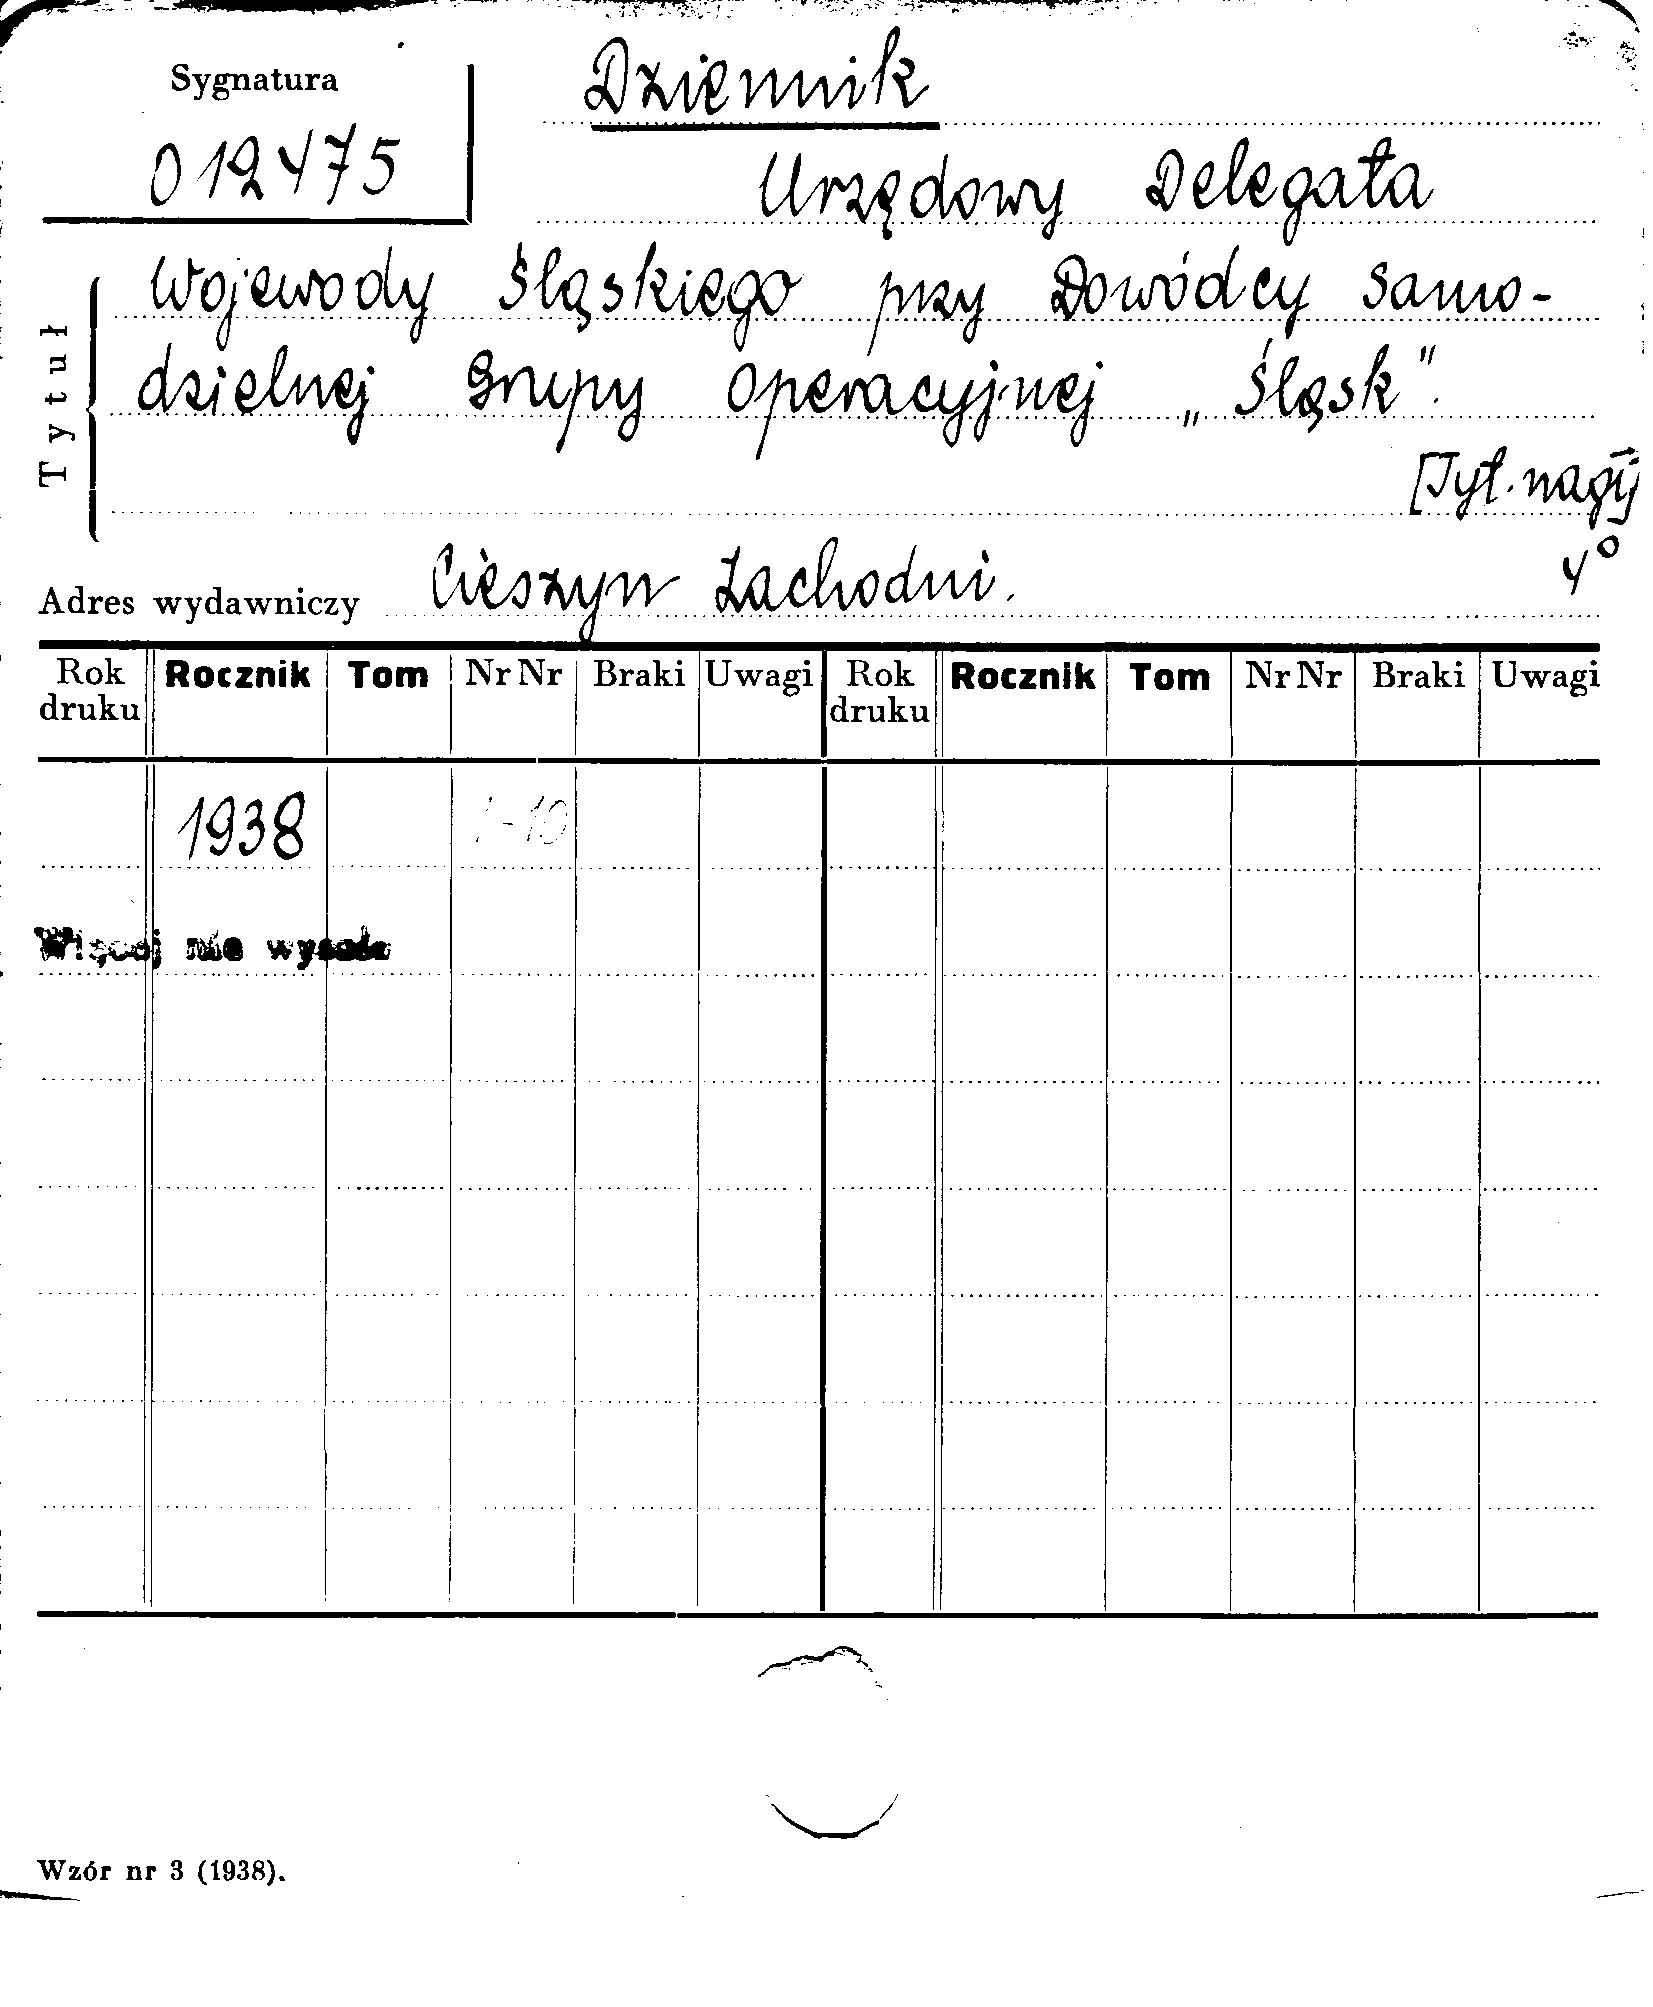 Sygnatura
012475
Dziennik
Urzędowy Delegata
Tytuł
Wojewody Śląskiego przy Dowódcy Samo-
dzielnej Grupy Operacyjnej „Śląsk".
[Tyt. nagł.]
4°
Adres wydawniczy Cieszyn Zachodni.
Rok druku Rocznik Tom Nr Nr Braki Uwagi Rok druku Rocznik Tom Nr Nr Braki Uwagi
1938 1-10
Więcej nie wyszło
Wzór nr 3 (1938).